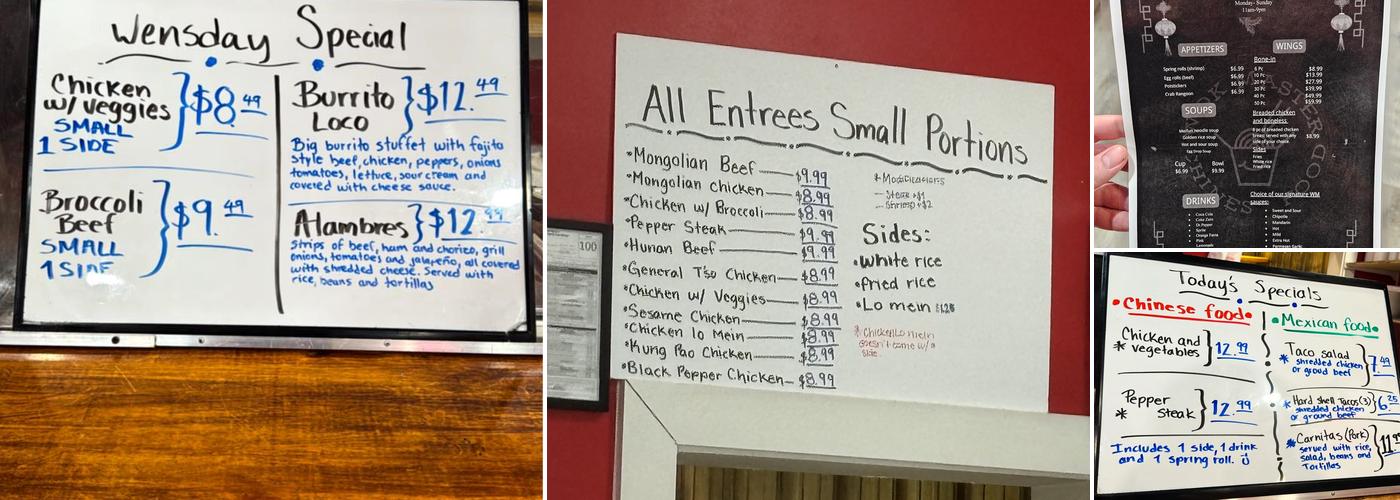 Wensday Special
Chicken
w/ Veggies
$8.49
SMALL
1 SIDE
Broccoli
Beef
$9.49
SMALL
1 SIDE
Burrito
Loco
$12.49
Big burrito stuffet with fajita
style beef, chicken, peppers, onions
tomatoes, lettuce, sour cream and
covered with cheese sauce.
Alambres $12.99
Strips of beef, ham and chorizo, grill
onions, tomatoes and jalapeño, all covered
with shredded cheese. Served with
rice, beans and tortillas
All Entrees Small Portions
•Mongolian Beef $9.99
•Mongolian chicken $8.99
•Chicken w/ Broccoli $8.99
•Pepper Steak $9.99
•Hunan Beef $9.99
•General Tso Chicken $8.99
•Chicken w/ Veggies $8.99
•Sesame Chicken $8.99
•Chicken lo mein $8.99
•Kung Pao Chicken $8.99
•Black Pepper Chicken $8.99
* Modifications
— Steak +$1
— Shrimp +$2
Sides:
•White rice
•fried rice
•Lo mein
* Chicken Lo mein
doesn't come w/ a
side.
100
Monday- Sunday
11am-9pm
APPETIZERS
Spring rolls (shrimp) $6.99
Egg rolls (beef) $6.99
Potstickers $6.99
Crab Rangoon $6.99
SOUPS
Wonton noodle soup
Golden rice soup
Hot and sour soup
Egg Drop Soup
Cup Bowl
$6.99 $9.99
DRINKS
Coca Cola
Coke Zero
Dr Pepper
Sprite
Orange Fanta
Pink
Lemonade
WINGS
Bone-in
6 Pc $8.99
10 Pc $13.99
20 Pc $27.99
30 Pc $39.99
40 Pc $49.99
50 Pc $59.99
Breaded chicken
and boneless
8 pc of breaded chicken
served with any
side of your choice. $8.99
Sides
Fries
White rice
Fried rice
Choice of our signature WM
sauces:
Sweet and Sour
Chipotle
Mandarin
Hot
Mild
Extra Hot
Parmesan Garlic
Today's Specials
•Chinese food•
Chicken and
* vegetables
12.99
Pepper
* Steak
12.99
Includes 1 side, 1 drink
and 1 spring roll.
•Mexican food•
Taco salad
* shredded chicken
or groud beef
7.49
* Hard shell Tacos (3)
shredded chicken
or ground beef
6.25
* Carnitas (Pork)
served with rice,
salad, beans and
Tortillas